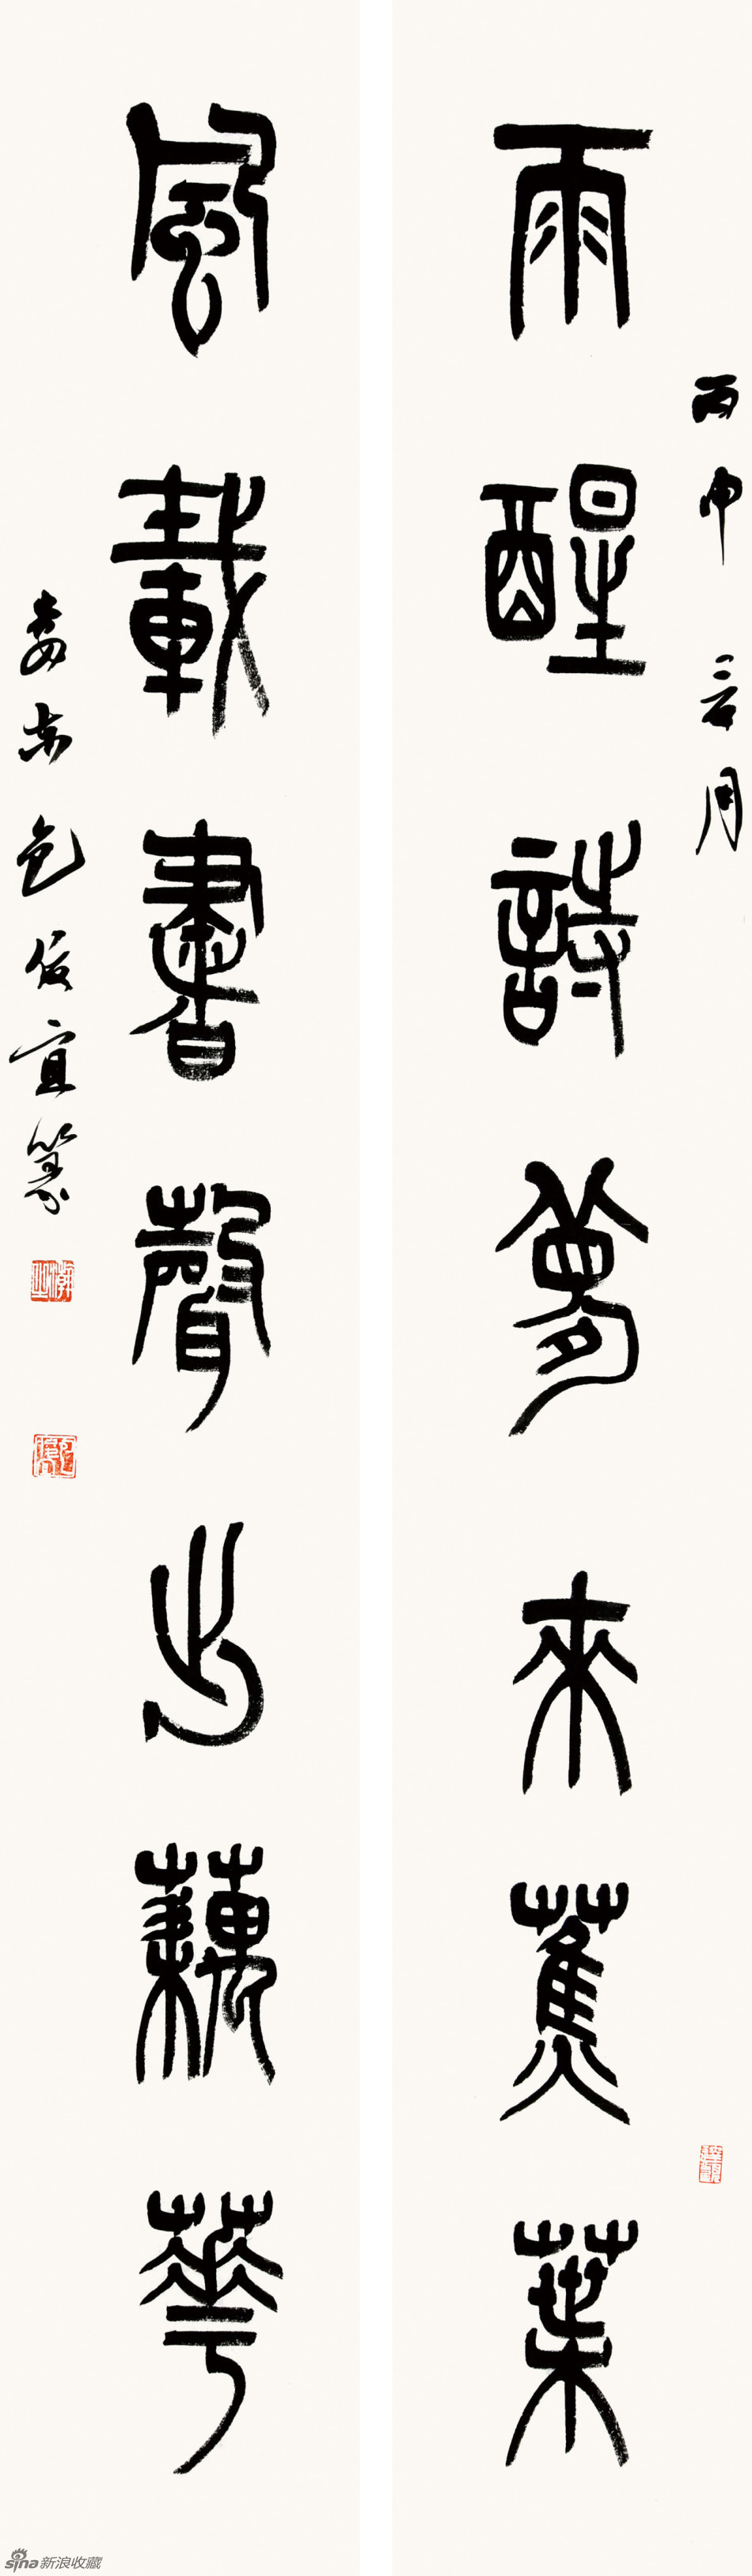 丙申三月
雨醒詩夢來蕉葉
風載書聲出藕華
婁東包俊宜篆
sina新浪收藏